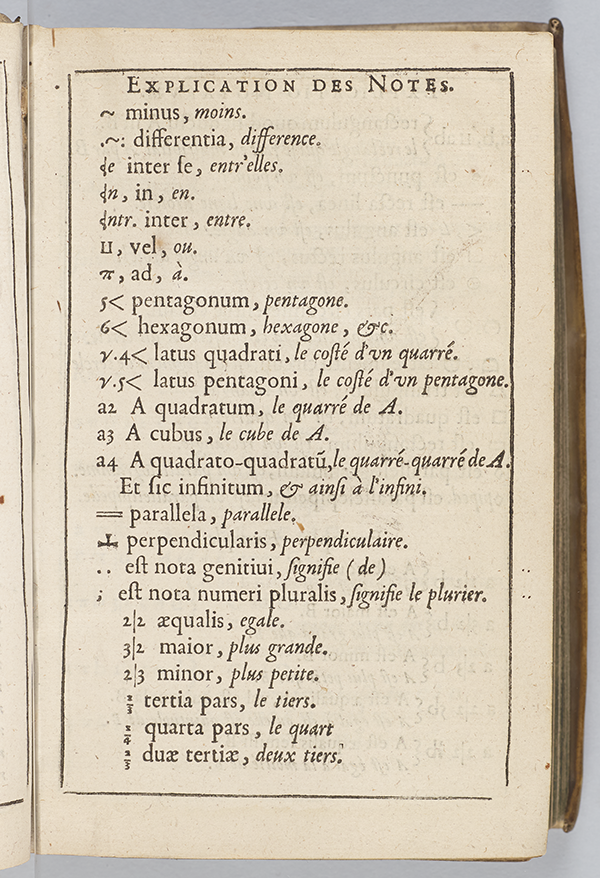 EXPLICATION DES NOTES.
~ minus, moins.
.~: differentia, difference.
inter ſe, entr'elles.
in, en.
inter, entre.
⊔, vel, ou.
π, ad, à.
5< pentagonum, pentagone.
6< hexagonum, hexagone, &c.
ν.4< latus quadrati, le coſté d'vn quarré.
ν.5< latus pentagoni, le coſté d'vn pentagone.
a2 A quadratum, le quarré de A.
a3 A cubus, le cube de A.
a4 A quadrato-quadratũ, le quarré-quarré de A.
Et ſic infinitum, & ainſi à l'infini.
= parallela, parallele.
⊥ perpendicularis, perpendiculaire.
.. eſt nota genitiui, ſignifie (de)
; eſt nota numeri pluralis, ſignifie le plurier.
2|2 æqualis, egale.
3|2 maior, plus grande.
2|3 minor, plus petite.
tertia pars, le tiers.
quarta pars, le quart
2/3 duæ tertiæ, deux tiers.